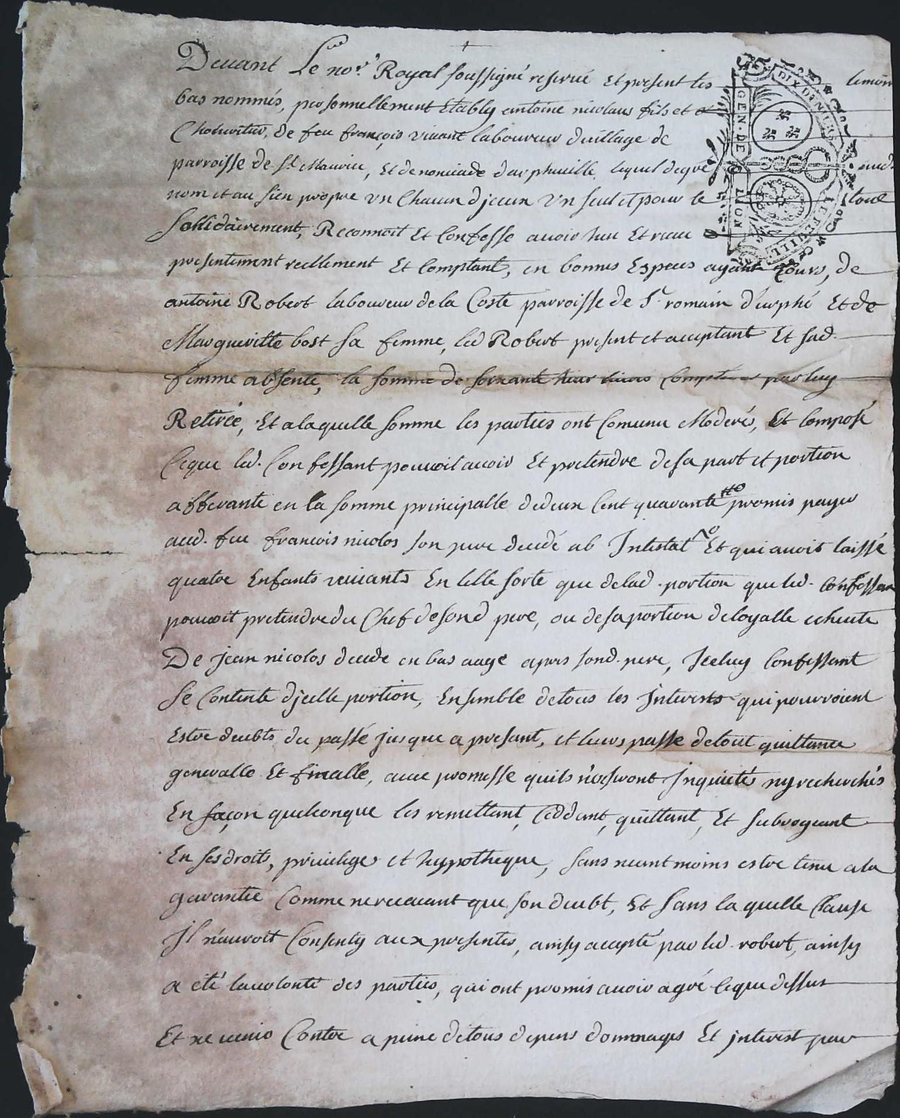 Devant Le no.re Royal soussigné reservé Et present tes témoins
bas nommés, personnellement Etably antoine nicolaus fils et
de feu françois vivant laboureur du village de
parroisse de st. Maurice, Et de
nom et au sien propre Un Chacun d'jceux Un seul et pour le tout
Sollidairement, Reconnoit Et Confesse avoir heu Et receu
presentement reellement Et Comptant, en bonnes Especes ayant Cours, de
antoine Robert laboureur de la Coste parroisse de St. romain d'urphé Et de
Margueritte bost sa femme, led Robert present et acceptant Et sad.
femme absente, la somme de soixante par luy
Retirée, Et a la quelle somme les parties ont Comunu Moderés, Et Composé
Ceque led. Confessant pouvoit avoir Et pretendre de sa part et portion
afferante en la somme principalle de deux Cent quarante tt promis payer
aud. feu françois nicolos son pere decedé ab Intestat Et qui avoit laissé
quatre Enfants vivants En telle sorte que de lad. portion que led. Confessant
pouvoit pretendre du Chef de sond pere, ou de sa portion de loyalle echeute
De jean nicolos decede en bas aage apres sond. pere, Jceluy Confessant
se Contente d'jcelle portion, Ensemble de tous les Interests qui pourroient
Estre deubts du passé jusque a present, et leurs passe de tout quittance
generalle Et finalle, avec promesse quils n'en seront Inquietés ny recherchés
En façon quelconque les remettant, Ceddant, quittant, Et subrogeant
En ses droits, privileges et hyppotheque, sans neantmoins estre tenu a la
garantie Comme ne recevant que son deubt, Et sans la quelle Clause
Jl n'auroit Consenty aux presentes, ainsy accepté par led. robert, ainsy
a été la volonté des parties, qui ont promis avoir agré Ceque dessus
Et ne venir Contre a peine de tous depens dommages Et jnterest par
GEN. DE LION
DIX DENIERS
LE FEUILLE